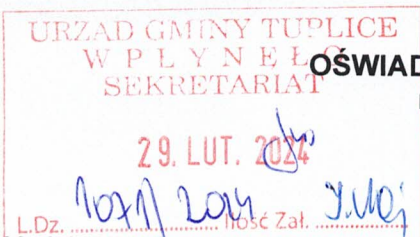 URZĄD GMINY TUPLICE
WPŁYNĘŁO
SEKRETARIAT
OŚWIAD
29. LUT. 2024
L.Dz. 1071/2024 Ilość Zał.